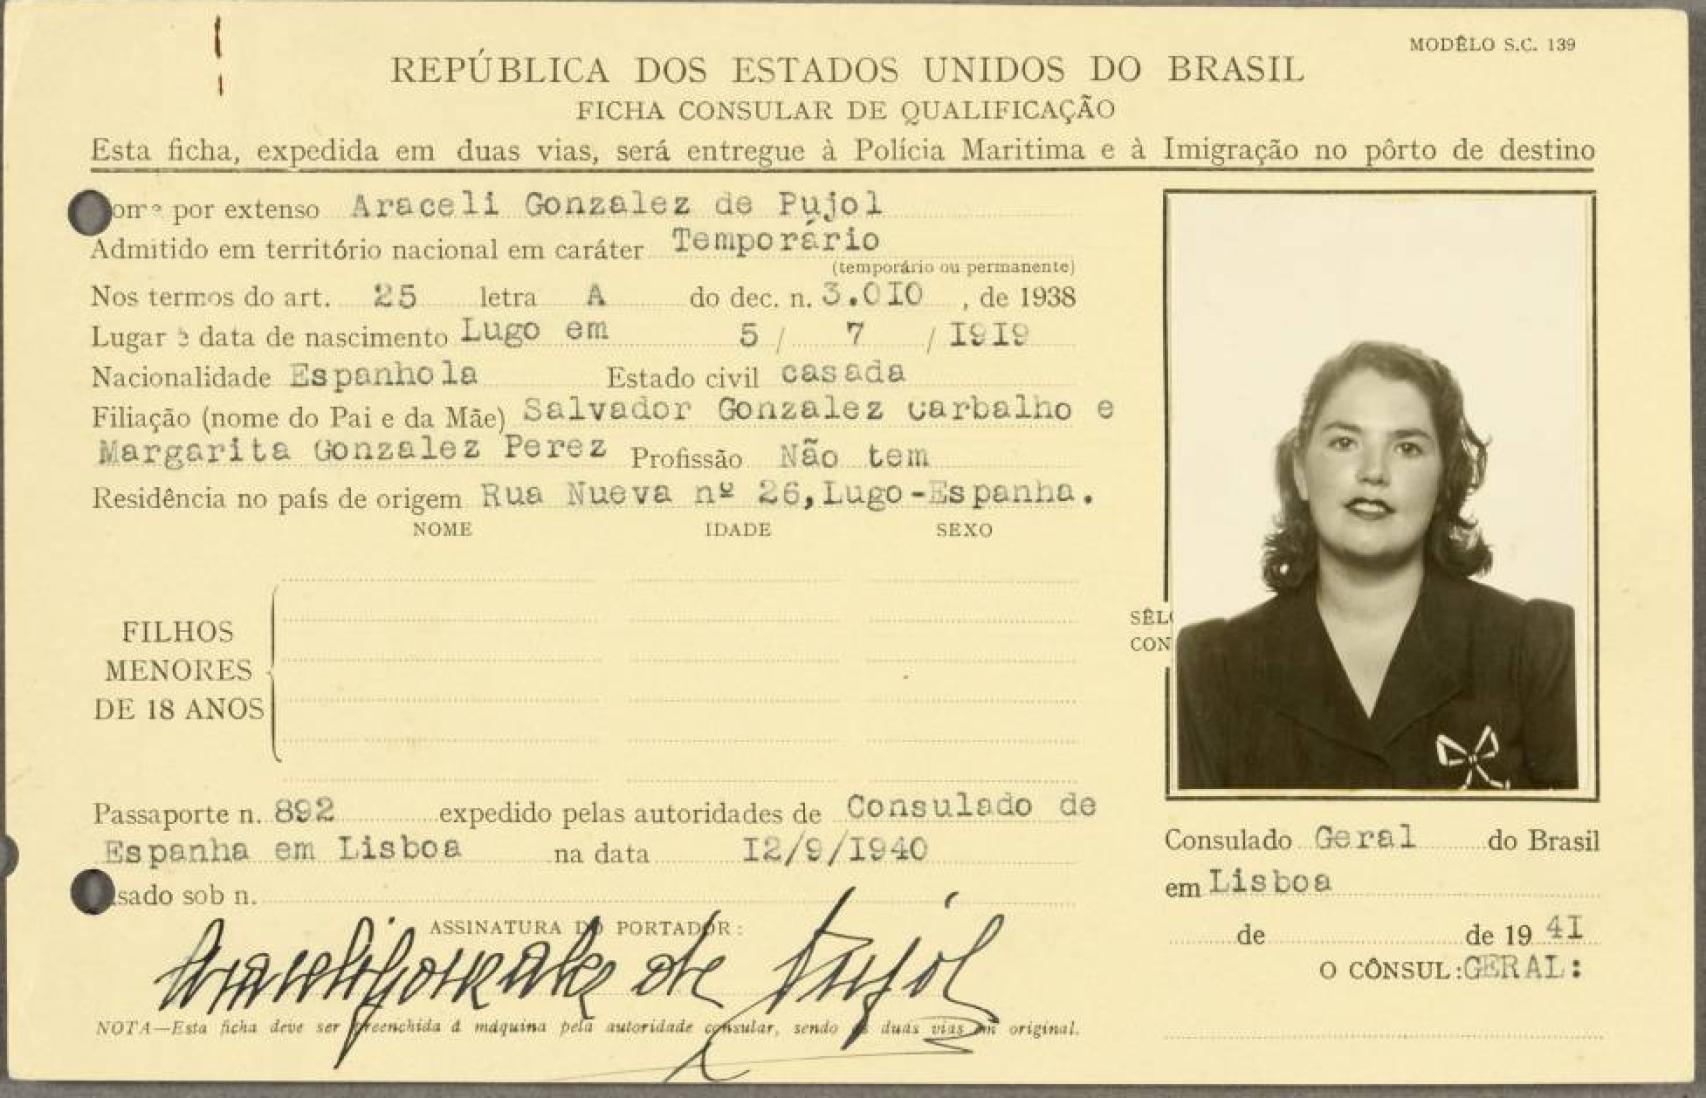 MODÊLO S.C. 139
REPÚBLICA DOS ESTADOS UNIDOS DO BRASIL
FICHA CONSULAR DE QUALIFICAÇÃO
Esta ficha, expedida em duas vias, será entregue à Polícia Maritima e à Imigração no pôrto de destino
ome por extenso Araceli Gonzalez de Pujol
Admitido em território nacional em caráter Temporário
(temporário ou permanente)
Nos termos do art. 25 letra A do dec. n. 3.0I0 , de 1938
Lugar e data de nascimento Lugo em 5 / 7 / I9I9
Nacionalidade Espanhola Estado civil casada
Filiação (nome do Pai e da Mãe) Salvador Gonzalez Carbalho e
Margarita Gonzalez Perez Profissão Não tem
Residência no país de origem Rua Nueva nº 26,Lugo-Espanha.
NOME IDADE SEXO
FILHOS
MENORES
DE 18 ANOS
SÊL
CON
Passaporte n. 892 expedido pelas autoridades de Consulado de
Espanha em Lisboa na data I2/9/I940
sado sob n.
ASSINATURA DO PORTADOR:
Araceli Gonzalez de Pujol
NOTA—Esta ficha deve ser preenchida á máquina pela autoridade consular, sendo as duas vias em original.
Consulado Geral do Brasil
em Lisboa
de de 19 4I
O CÔNSUL:GERAL: